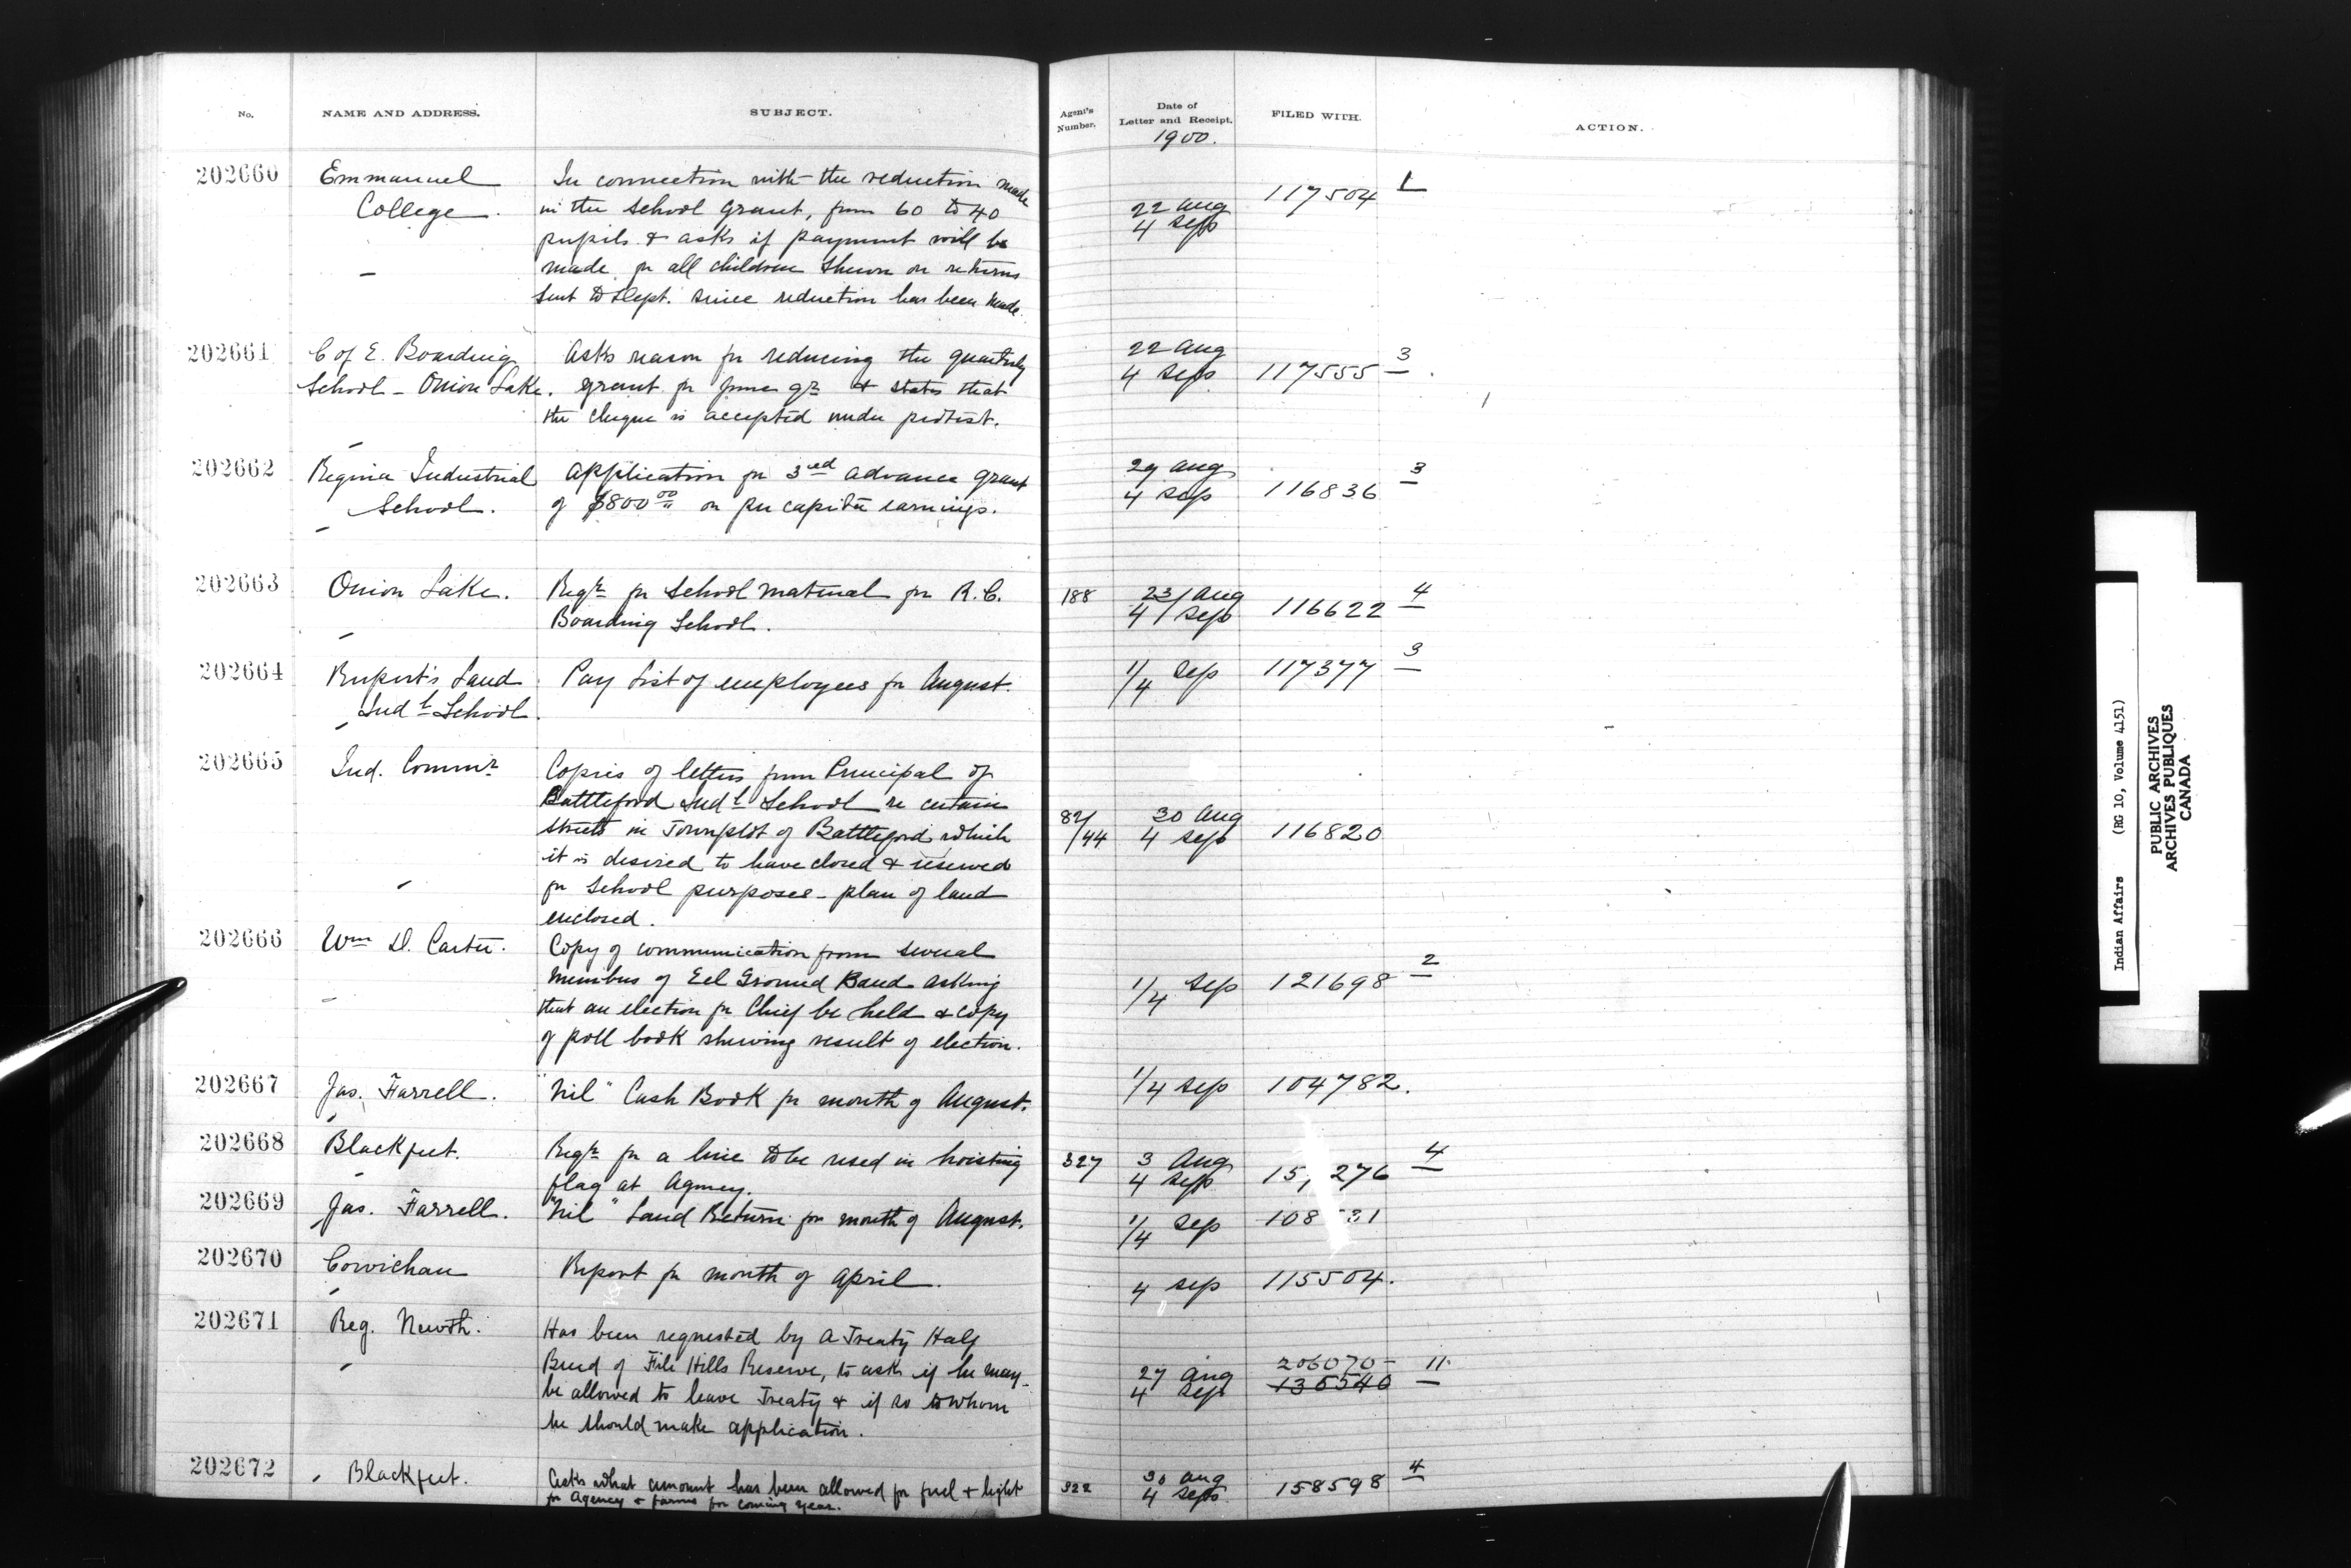 No. NAME AND ADDRESS. SUBJECT. Agent's Number. Date of Letter and Receipt. FILED WITH. ACTION.
1900.
202660 Emmanuel College. In connection with the reduction made
in the School Grant, from 60 to 40
pupils & asks if payment will be
made for all children shewn on returns
sent to Dept. since reduction has been made.
22 Aug
4 Sep
117504 1
202661 C of E. Boarding
School - Onion Lake.
Asks reason for reducing the quarterly
grant for June qr & states that
the cheque is accepted under protest.
22 Aug
4 Sep
117555 3
202662 Regina Industrial
School.
Application for 3red advance grant
of $800 00 on per capita earnings.
29 Aug
4 Sep
116836 3
202663 Onion Lake.
Reqn for School material for R.C.
Boarding School.
188
23/ Aug
4/ Sep
116622 4
202664 Rupert's Land
Indl School.
Pay List of employees for August.
1/4 Sep
117377 3
202665 Ind. Commr
Copies of letters from Principal of
Battleford Indl School re certain
streets in Townplot of Battleford which
it is desired to have closed & reserved
for School purposes - plan of land
enclosed.
82/
/44
30 Aug
4 Sep
116820
202666 Wm D. Carter.
Copy of communication from several
members of Eel Ground Band asking
that an election for Chief be held & copy
of poll book shewing result of election.
1/4 Sep
121698 2
202667 Jas. Farrell.
"Nil" Cash Book for month of August.
1/4 Sep
104782.
202668 Blackfeet.
Reqn for a line to be used in hoisting
flag at Agency.
327
3 Aug
4 Sep
15, 276 4
202669 Jas. Farrell.
"Nil" Land Return for month of August.
1/4 Sep
202670 Cowichan
Report for month of April.
4 Sep
115504.
202671 Reg. Newth.
Has been requested by a Treaty Half
Breed of File Hills Reserve, to ask if he may
be allowed to leave Treaty & if so to whom
he should make application.
27 Aug
4 Sep
206070 - 11.
136540
202672 Blackfeet.
Asks what amount has been allowed for fuel & light
for Agency & farms for coming year.
322
30 Aug
4 Sep
158598 4
Indian Affairs (RG 10, Volume 4151)
PUBLIC ARCHIVES
ARCHIVES PUBLIQUES
CANADA